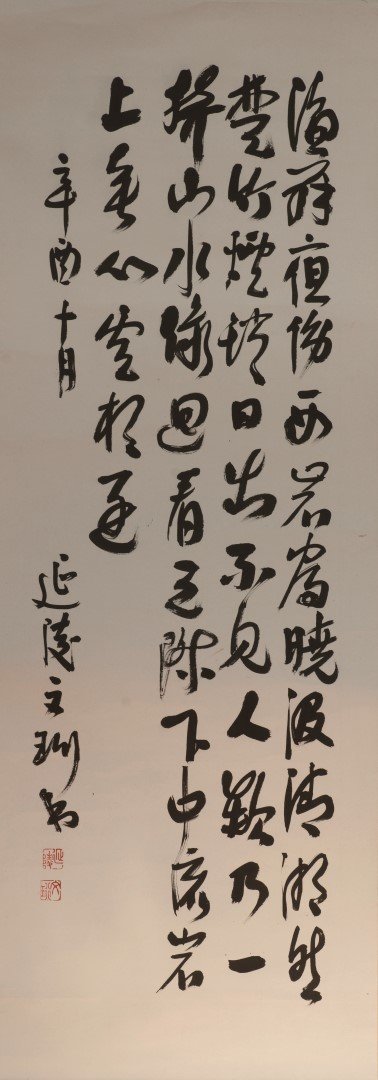 漁翁夜傍西岩宿曉汲清湘然
楚竹煙銷日出不見人欸乃一
聲山水綠回看天際下中流岩
上無心雲相逐
辛酉十月
延陵文書
延陵